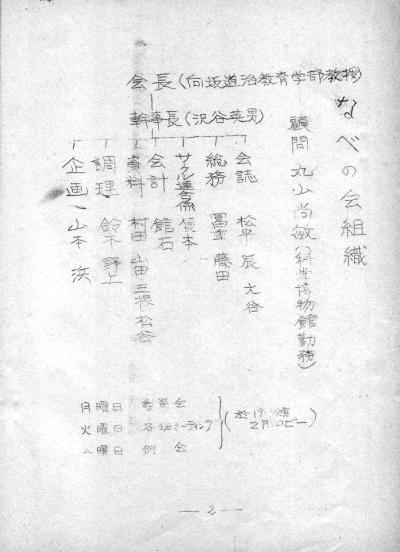 なべの会組織
顧問 丸山尚敏(科学博物館勤務)
会長(向坂道治教育学部教授)
幹事長(沢谷英男)
会誌 松平 辰 大谷
総務 冨士 藤田
サークル連合係 橋本
会計 館石
資料 村田 山田 三張 松谷
調理 鈴木 野上
企画 山本 浜
月曜日 委員会
火曜日 各班ミーティング
土曜日 例会
(於 サークル館
2Fロビー)
— 2 —